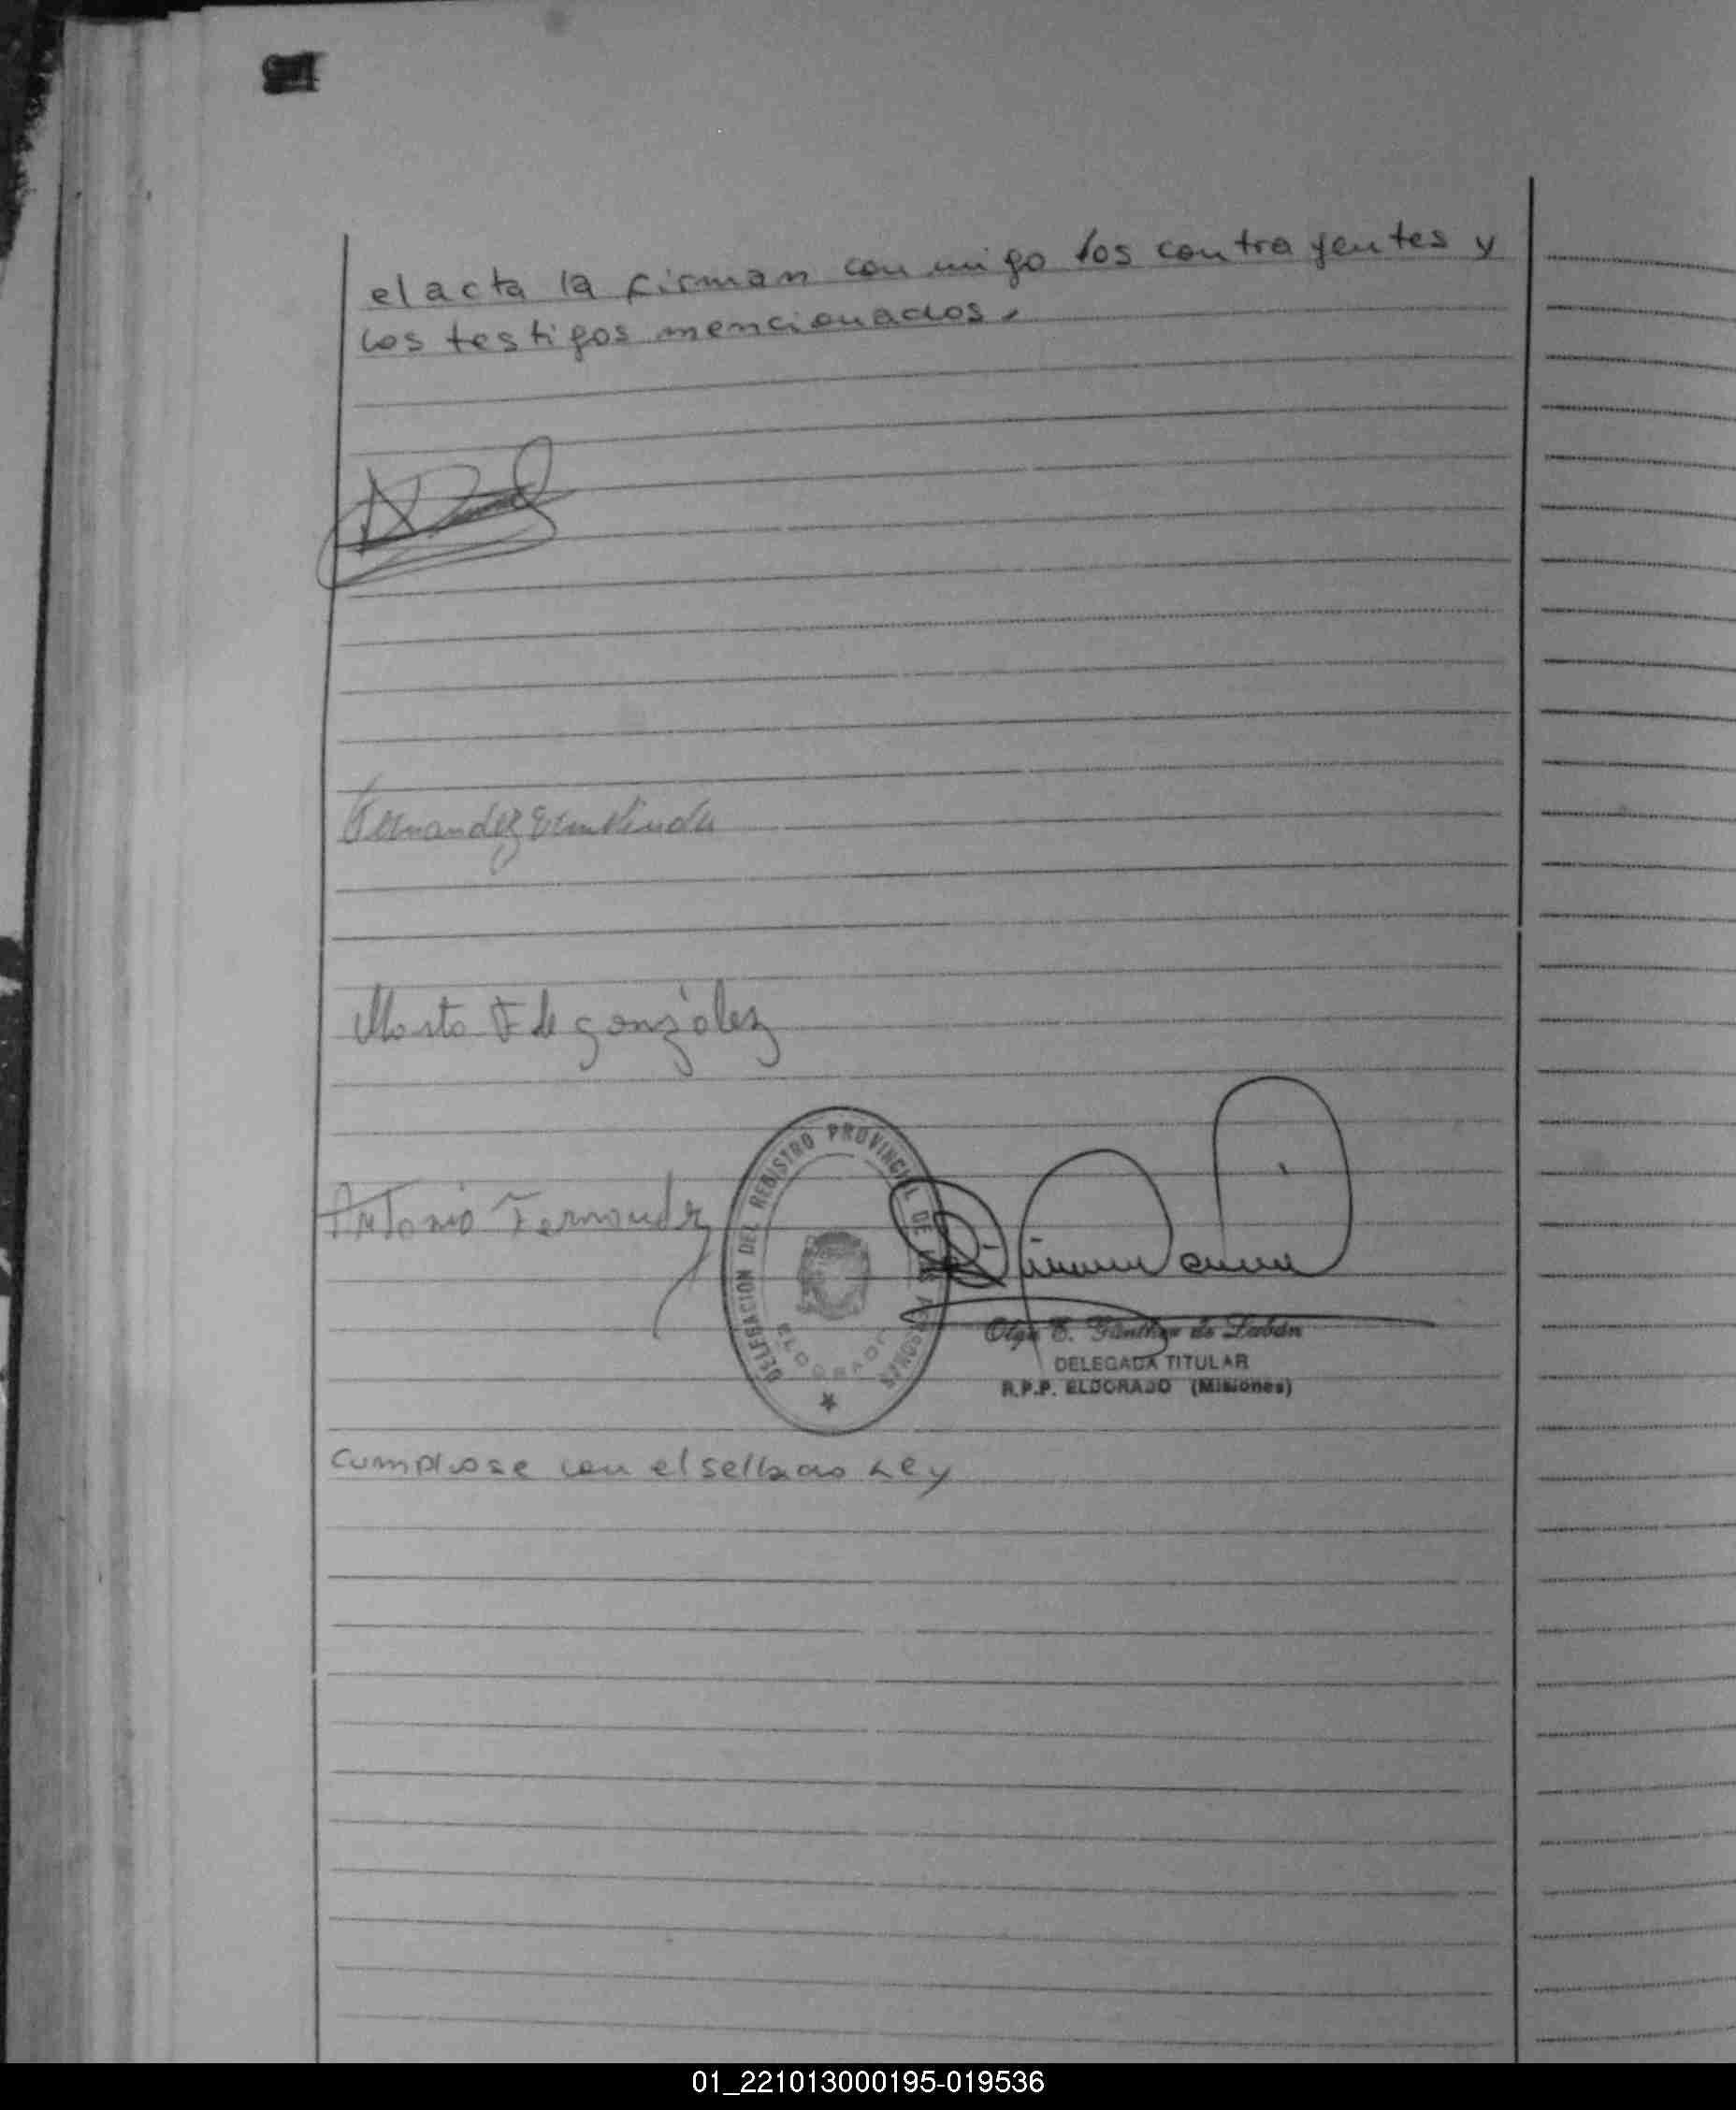 el acta la firman conmigo los contrayentes y
los testigos mencionados.
Fernandez
Marta F de gonzález
Antonio Fernandez
DELEGACION DEL REGISTRO PROVINCIAL DE LAS PERSONAS
ELDORADO
Olga E. Günther de Labán
DELEGADA TITULAR
R.P.P. ELDORADO (Misiones)
Cumplase con el sellado Ley
01_221013000195-019536